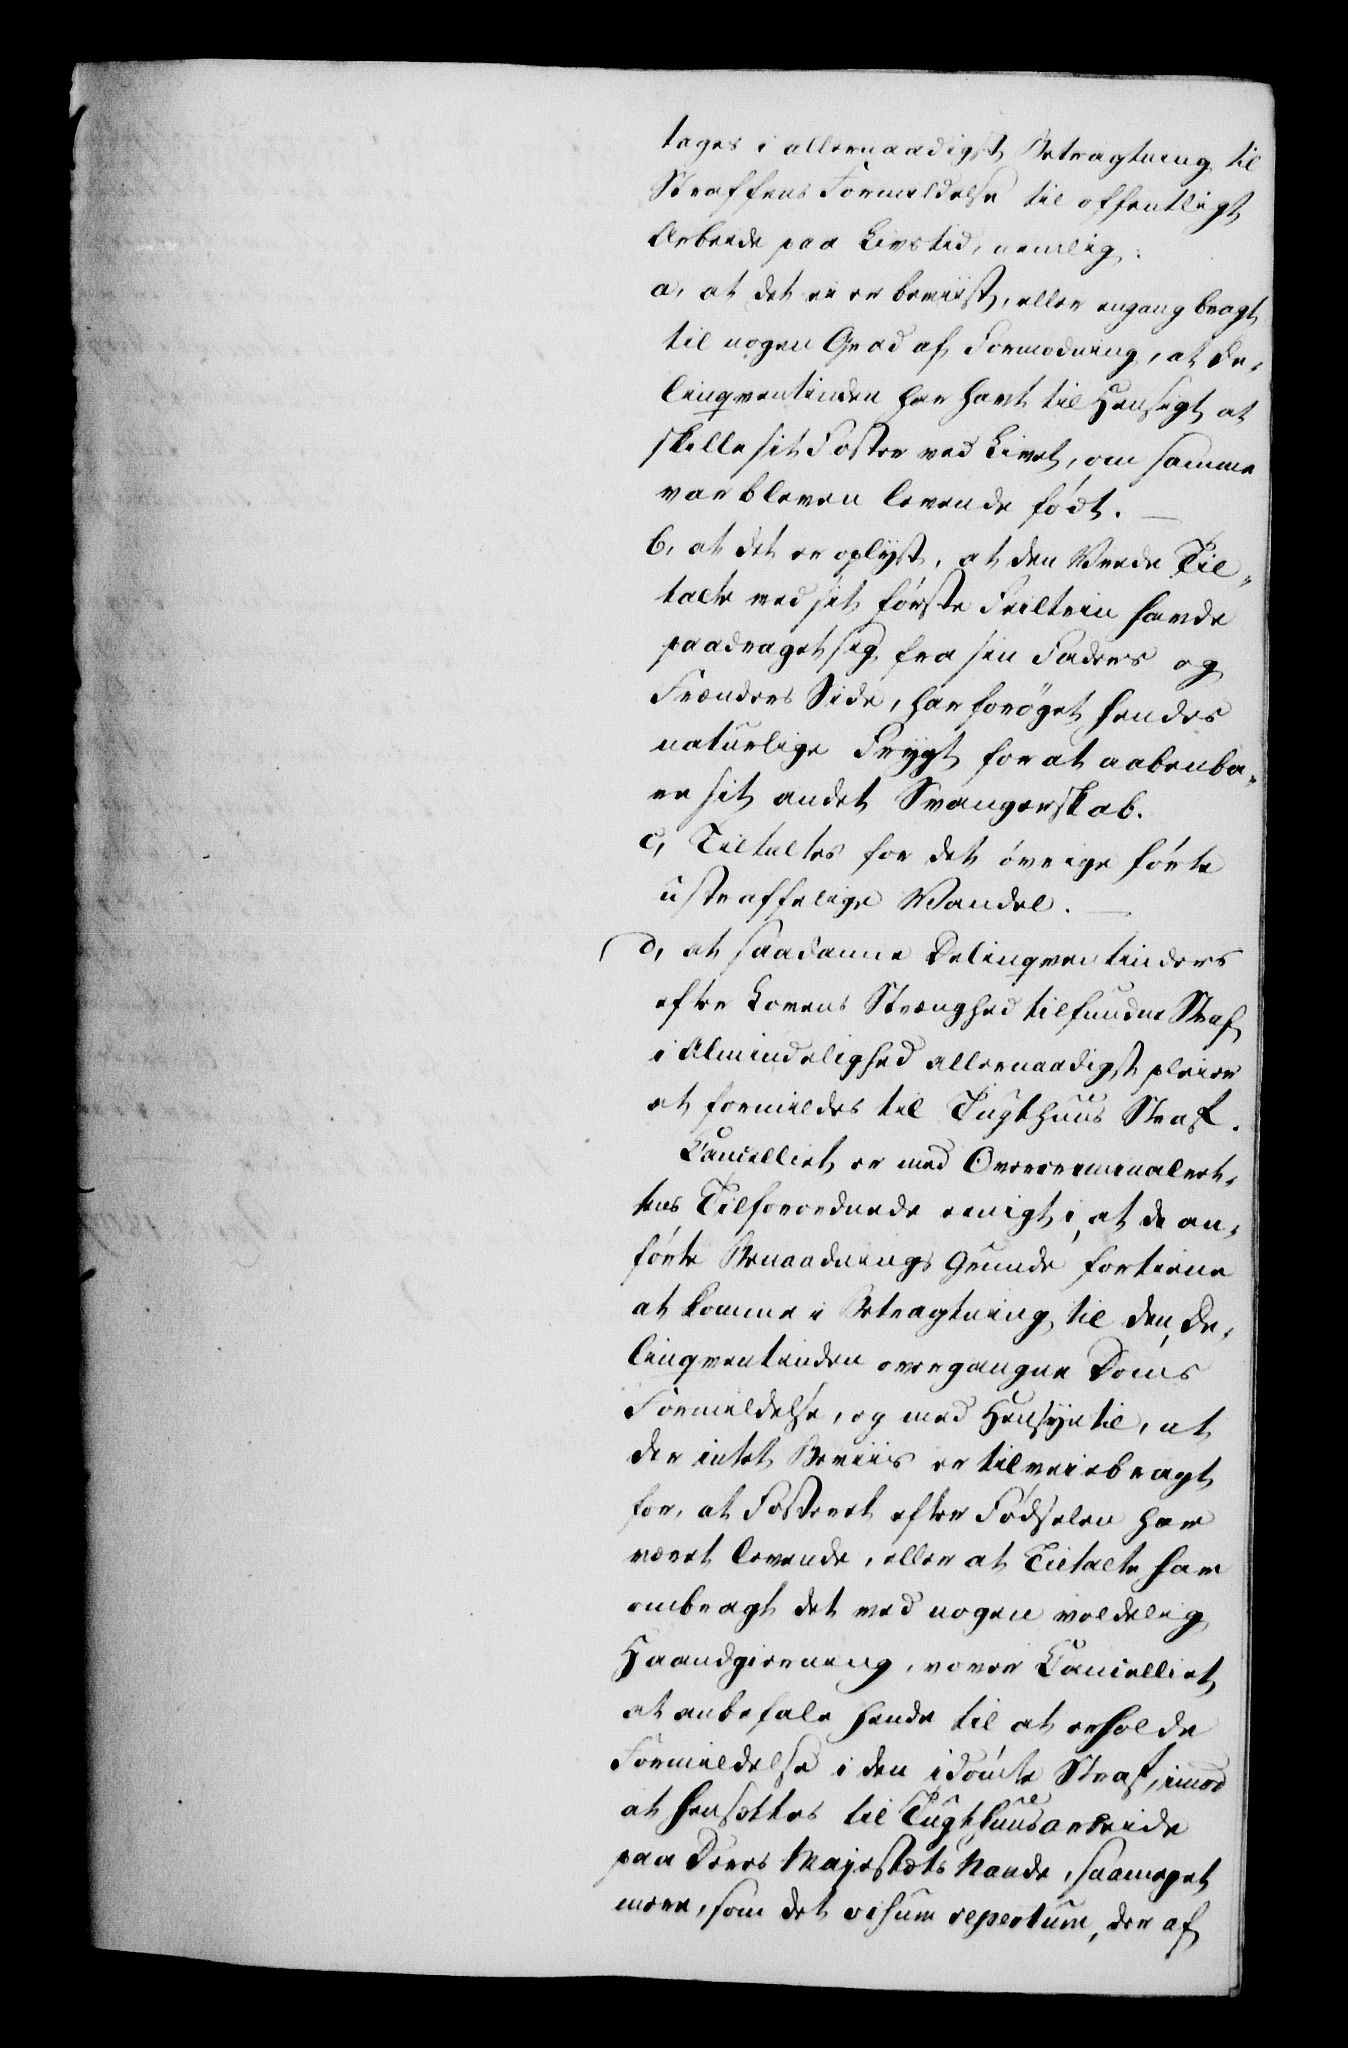 tages i allernaadigst Betragtning til
Straffens Formildelse til offentligt
Arbeide paa Livstid, nemlig:
a, at det ei er beviist, eller engang bragt
til nogen Grad af Formodning, at De-
linqventinden har havt til Hensigt at
skille sit Foster ved Livet, om samme
var bleven levende født.
b, at det er oplyst, at den Vrede Til-
talte ved sit første Feiltrin havde
paadraget sig fra sin Faders og
Frænders Side, har forøget hendes
naturlige Frygt for at aabenba-
re sit andet Svangerskab.
c, Tiltaltes for det øvrige førte
ustraffelige Vandel.
d, at saadanne Delinqventinders
efter Lovens Strænghed tilfundne Straf
i Almindelighed allernaadigst pleier
at formildes til Tugthuus Straf.
Cancelliet er med Overcriminalret-
tens Tilforordnede eenigt i, at de an-
førte Benaadnings Grunde fortiene
at komme i Betragtning til den De-
linqventinden overgangne Doms
Formildelse, og med Hensyn til, at
der intet Beviis er tilveiebragt
for, at Fosteret efter Fødselen har
været levende, eller at Tiltalte har
ombragt det ved nogen voldelig
Haandgierning, vover Cancelliet
at anbefale hende til at erholde
Formildelse i den idømte Straf, imod
at hensættes til Tugthuusarbeide
paa Deres Majestæts Naade, saameget
mere, som det visum repertum, der af